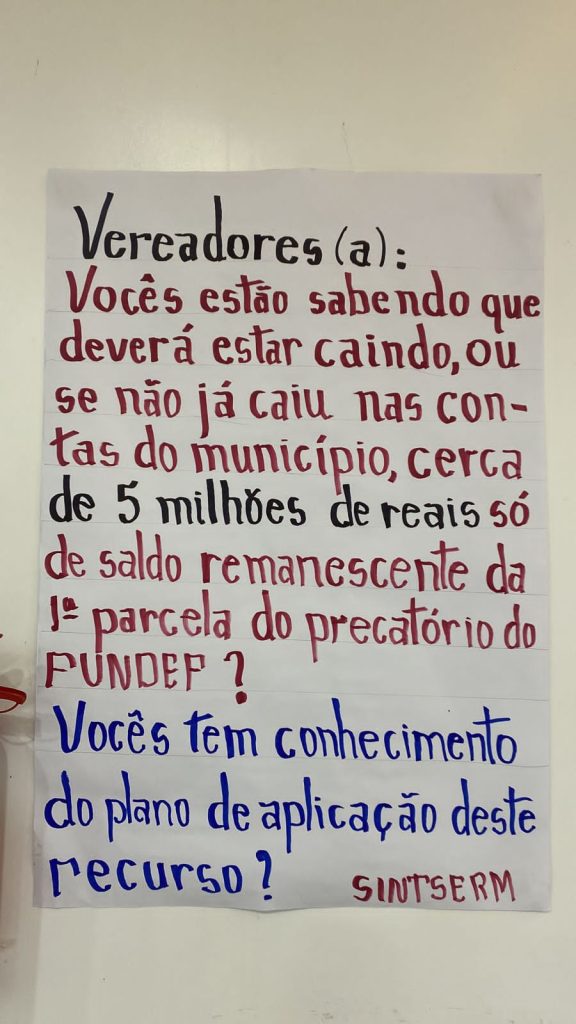 Vereadores (a):
Vocês estão sabendo que
deverá estar caindo, ou
se não já caiu nas con-
tas do município, cerca
de 5 milhões de reais só
de saldo remanescente da
1ª parcela do precatório do
FUNDEF?
Vocês tem conhecimento
do plano de aplicação deste
recurso?
SINTSERM